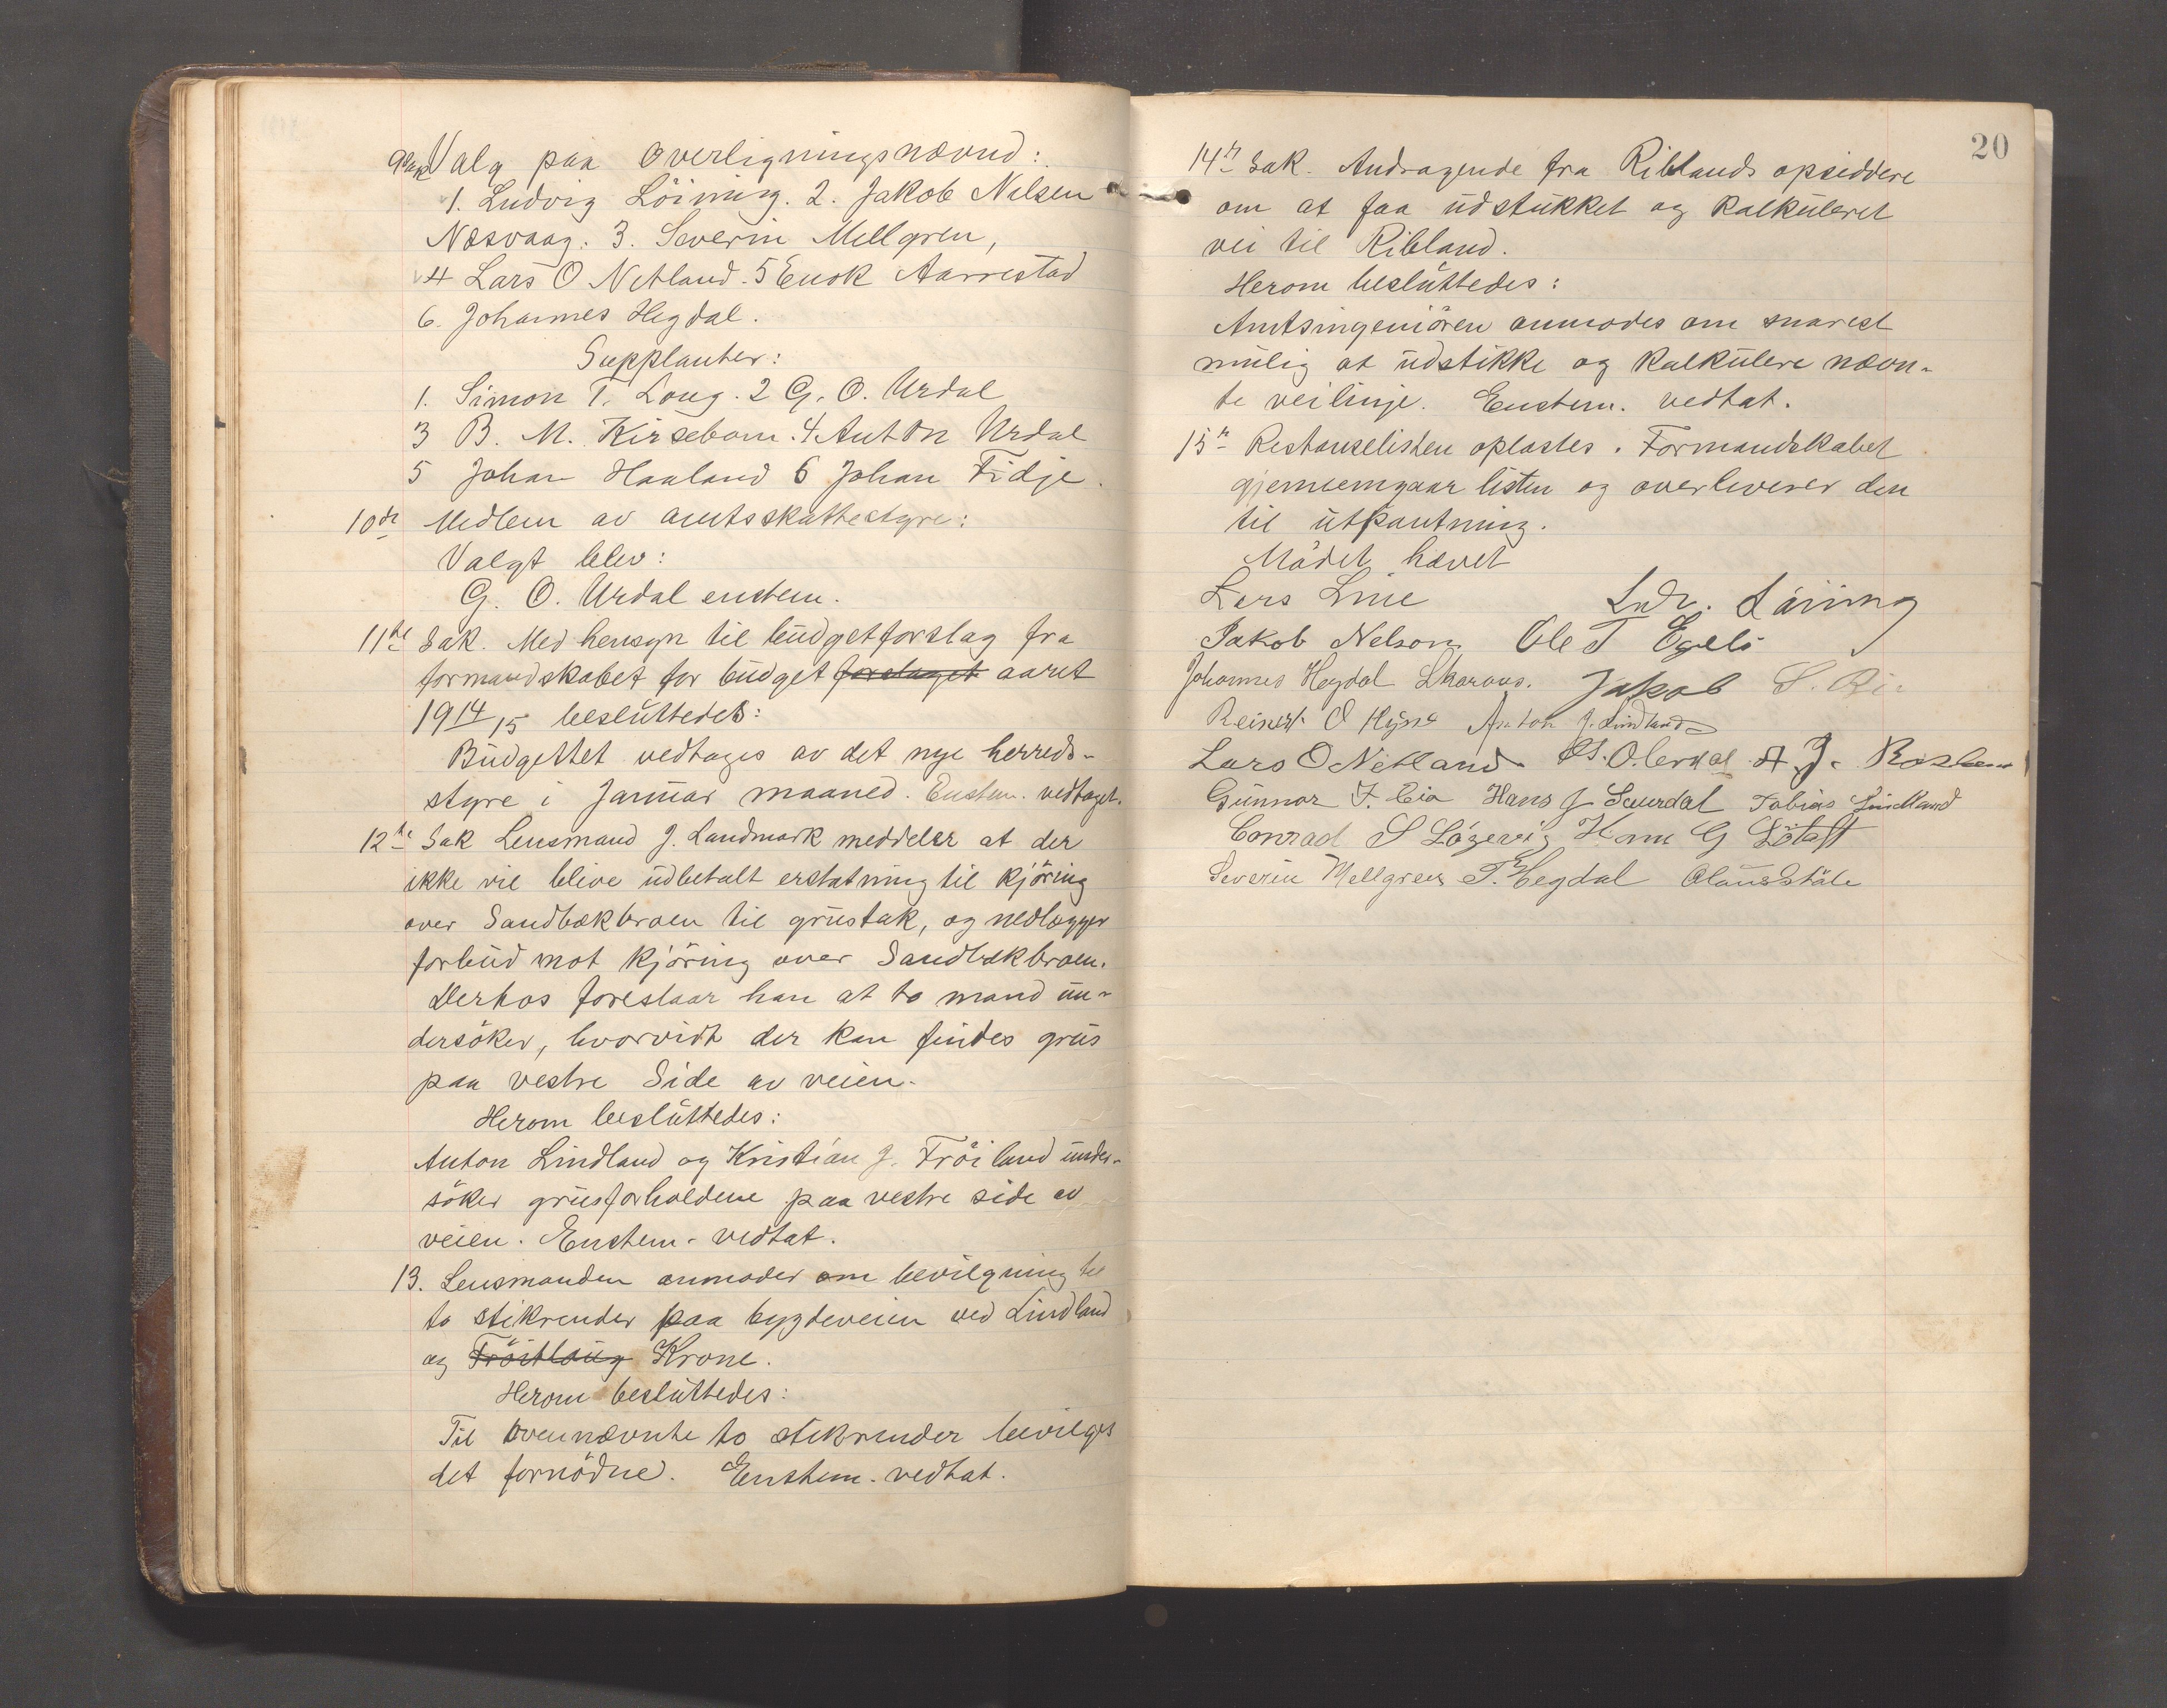 9 Sak Valg paa overligningsnævnd:
1. Ludvig Löining. 2. Jakob Nelsen
Næsvaag. 3. Severin Mellgren,
4 Lars O Netland. 5 Enok Aarrestad
6. Johannes Hegdal.
Supplanter:
1. Simon T. Loug. 2 G. O. Urdal
3 B. M. Kirsebom. 4 Anton Urdal
5 Johan Haaland 6 Johan Fidje.
10de Medlem av amtsskattestyre:
Valgt blev:
G. O. Urdal enstem.
11te Sak. Med hensyn til budgetforslag fra
formandskabet for budget forslaget aaret
1914/15 besluttedes:
Budgettet vedtages av det nye herreds-
styre i Januar maaned. Enstem. vedtaget.
12te Sak Lensmand J. Landmark meddeler at der
ikke vil blive udbetalt erstatning til kjöring
over Sandbækbroen til grustak, og nedlægger
forbud mot kjöring over Sandbækbroen.
Derhos foreslaar han at to mand un-
dersöker, hvorvidt der kan findes grus
paa vestre Side av veien.
Herom besluttedes:
Anton Lindland og Kristian J. Fröiland under-
söker grusforholdene paa vestre side av
veien. Enstem. vedtat.
13. Lensmanden anmoder om bevilgning til
to stikrender paa bygdeveien ved Lindland
og Fröitlaug Krone.
Herom besluttedes:
Til ovennævnte to stikrender bevilges
det fornödne. Enstem. vedtat.
20
14de Sak. Andragende fra Riblands opsiddere
om at faa udstukket og kalkuleret
vei til Ribland.
Herom besluttedes:
Amtsingeniören anmodes om snarest
mulig at udstikke og kalkulere nævn-
te veilinje. Enstem. vedtat.
15de Restanselisten oplæstes. Formandskabet
gjennemgaar listen og overleverer den
til utpantning.
Mödet hævet
Lars Line Ludv. Löining
Jakob Nelson Ole T
Johannes Hegdal Jakob S.
Reinert O Anton J. Lindland
Lars O Netland G. O. Urdal A. J.
Gunnar T. Eia Hans J Saurdal Tobias Lindland
Conrad S Hans G
Severin Mellgren T. Hegdal Olaus Ståle